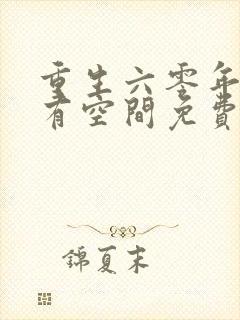 重生六零年
有空間免費
錦夏末